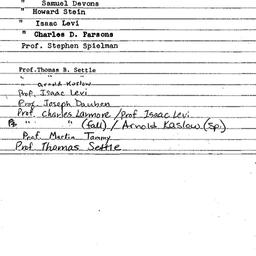 " Samuel Devons
" Howard Stein
" Isaac Levi
" Charles D. Parsons
Prof. Stephen Spielman
Prof. Thomas B. Settle
" Arnold Koslow
Prof. Isaac Levi
Prof. Joseph Dauben
Prof. Charles Larmore / Prof Isaac Levi
" " (fall) / Arnold Koslow (Sp.)
Prof. Martin Tammy
Prof Thomas Settle